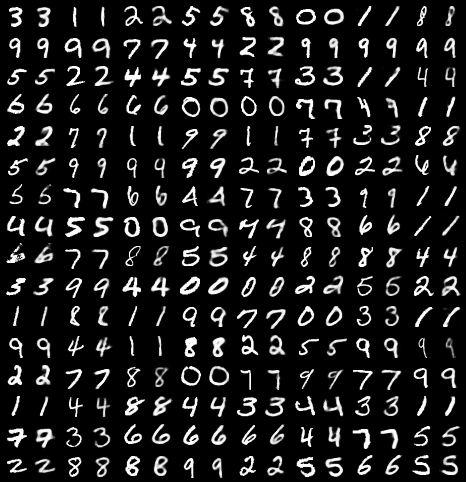 3 3 1 1 2 2 5 5 8 8 0 0 1 1 8 8
9 9 9 9 7 7 4 4 2 2 9 9 9 9 9 9
5 5 2 2 4 4 5 5 7 7 3 3 1 1 4 4
6 6 6 6 6 6 0 0 0 0 7 7 4 9 1 1
2 2 7 7 1 1 9 9 1 1 7 7 3 3 8 8
5 5 9 9 9 9 9 9 2 2 0 0 2 2 6 6
5 5 7 7 6 6 4 4 7 7 3 3 9 9 1 1
4 4 5 5 0 0 9 9 4 4 8 8 6 6 1 1
6 6 7 7 8 8 5 5 4 4 8 8 8 8 4 4
3 3 9 9 4 4 0 0 0 0 2 2 5 5 2 2
1 1 8 8 1 1 9 9 7 7 0 0 3 3 1 1
9 9 4 4 1 1 8 8 2 2 5 5 9 9 9 9
2 2 7 7 8 8 0 0 7 7 9 9 7 7 9 9
1 1 4 4 8 8 4 4 3 3 4 4 3 3 1 1
7 7 3 3 6 6 6 6 6 6 4 4 7 7 5 5
2 2 8 8 8 8 9 9 2 2 5 5 6 6 5 5